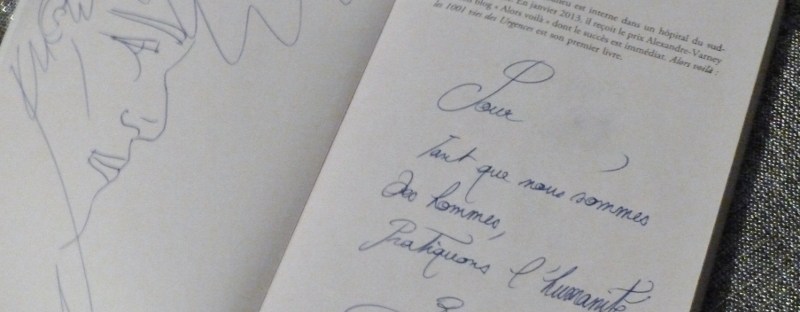 est interne dans un hôpital du sud-
blog « Alors voilà » dont le succès est immédiat. Alors voilà :
En janvier 2013, il reçoit le prix Alexandre-Varney
les 1001 vies des Urgences est son premier livre.
Pour ,
Tant que nous sommes
des hommes,
Pratiquons l'humanité